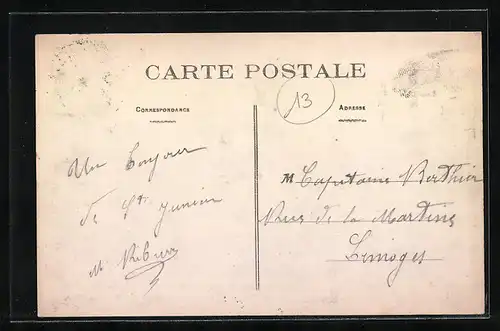 CARTE POSTALE
13
CORRESPONDANCE
ADRESSE
Un bonjour
de St Junien
M
M Capitaine Berthier
Rue de la Martine
Limoges